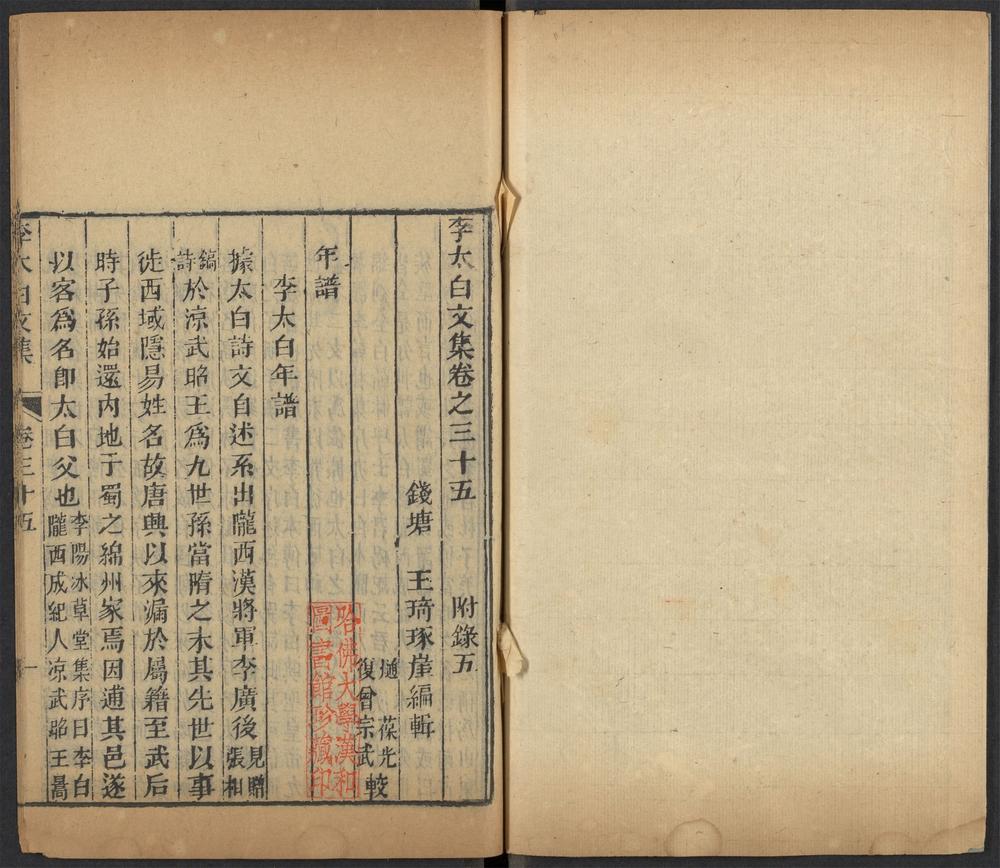 李太白文集卷之三十五 附錄五
錢塘 王琦琢崖編輯
趟 葆光
復曾宗武 較
年譜
李太白年譜
據太白詩文自述系出隴西漢將軍李廣後見贈張相
鎬詩於涼武昭王爲九世孫當隋之末其先世以事
徙西域隱易姓名故唐興以來漏於屬籍至武后
時子孫始還内地于蜀之綿州家焉因逋其邑遂
以客爲名卽太白父也李陽冰草堂集序曰李白
隴西成紀人涼武昭王暠
李太白文集 卷三十五 一
哈佛大學漢和
圖書館珍藏印